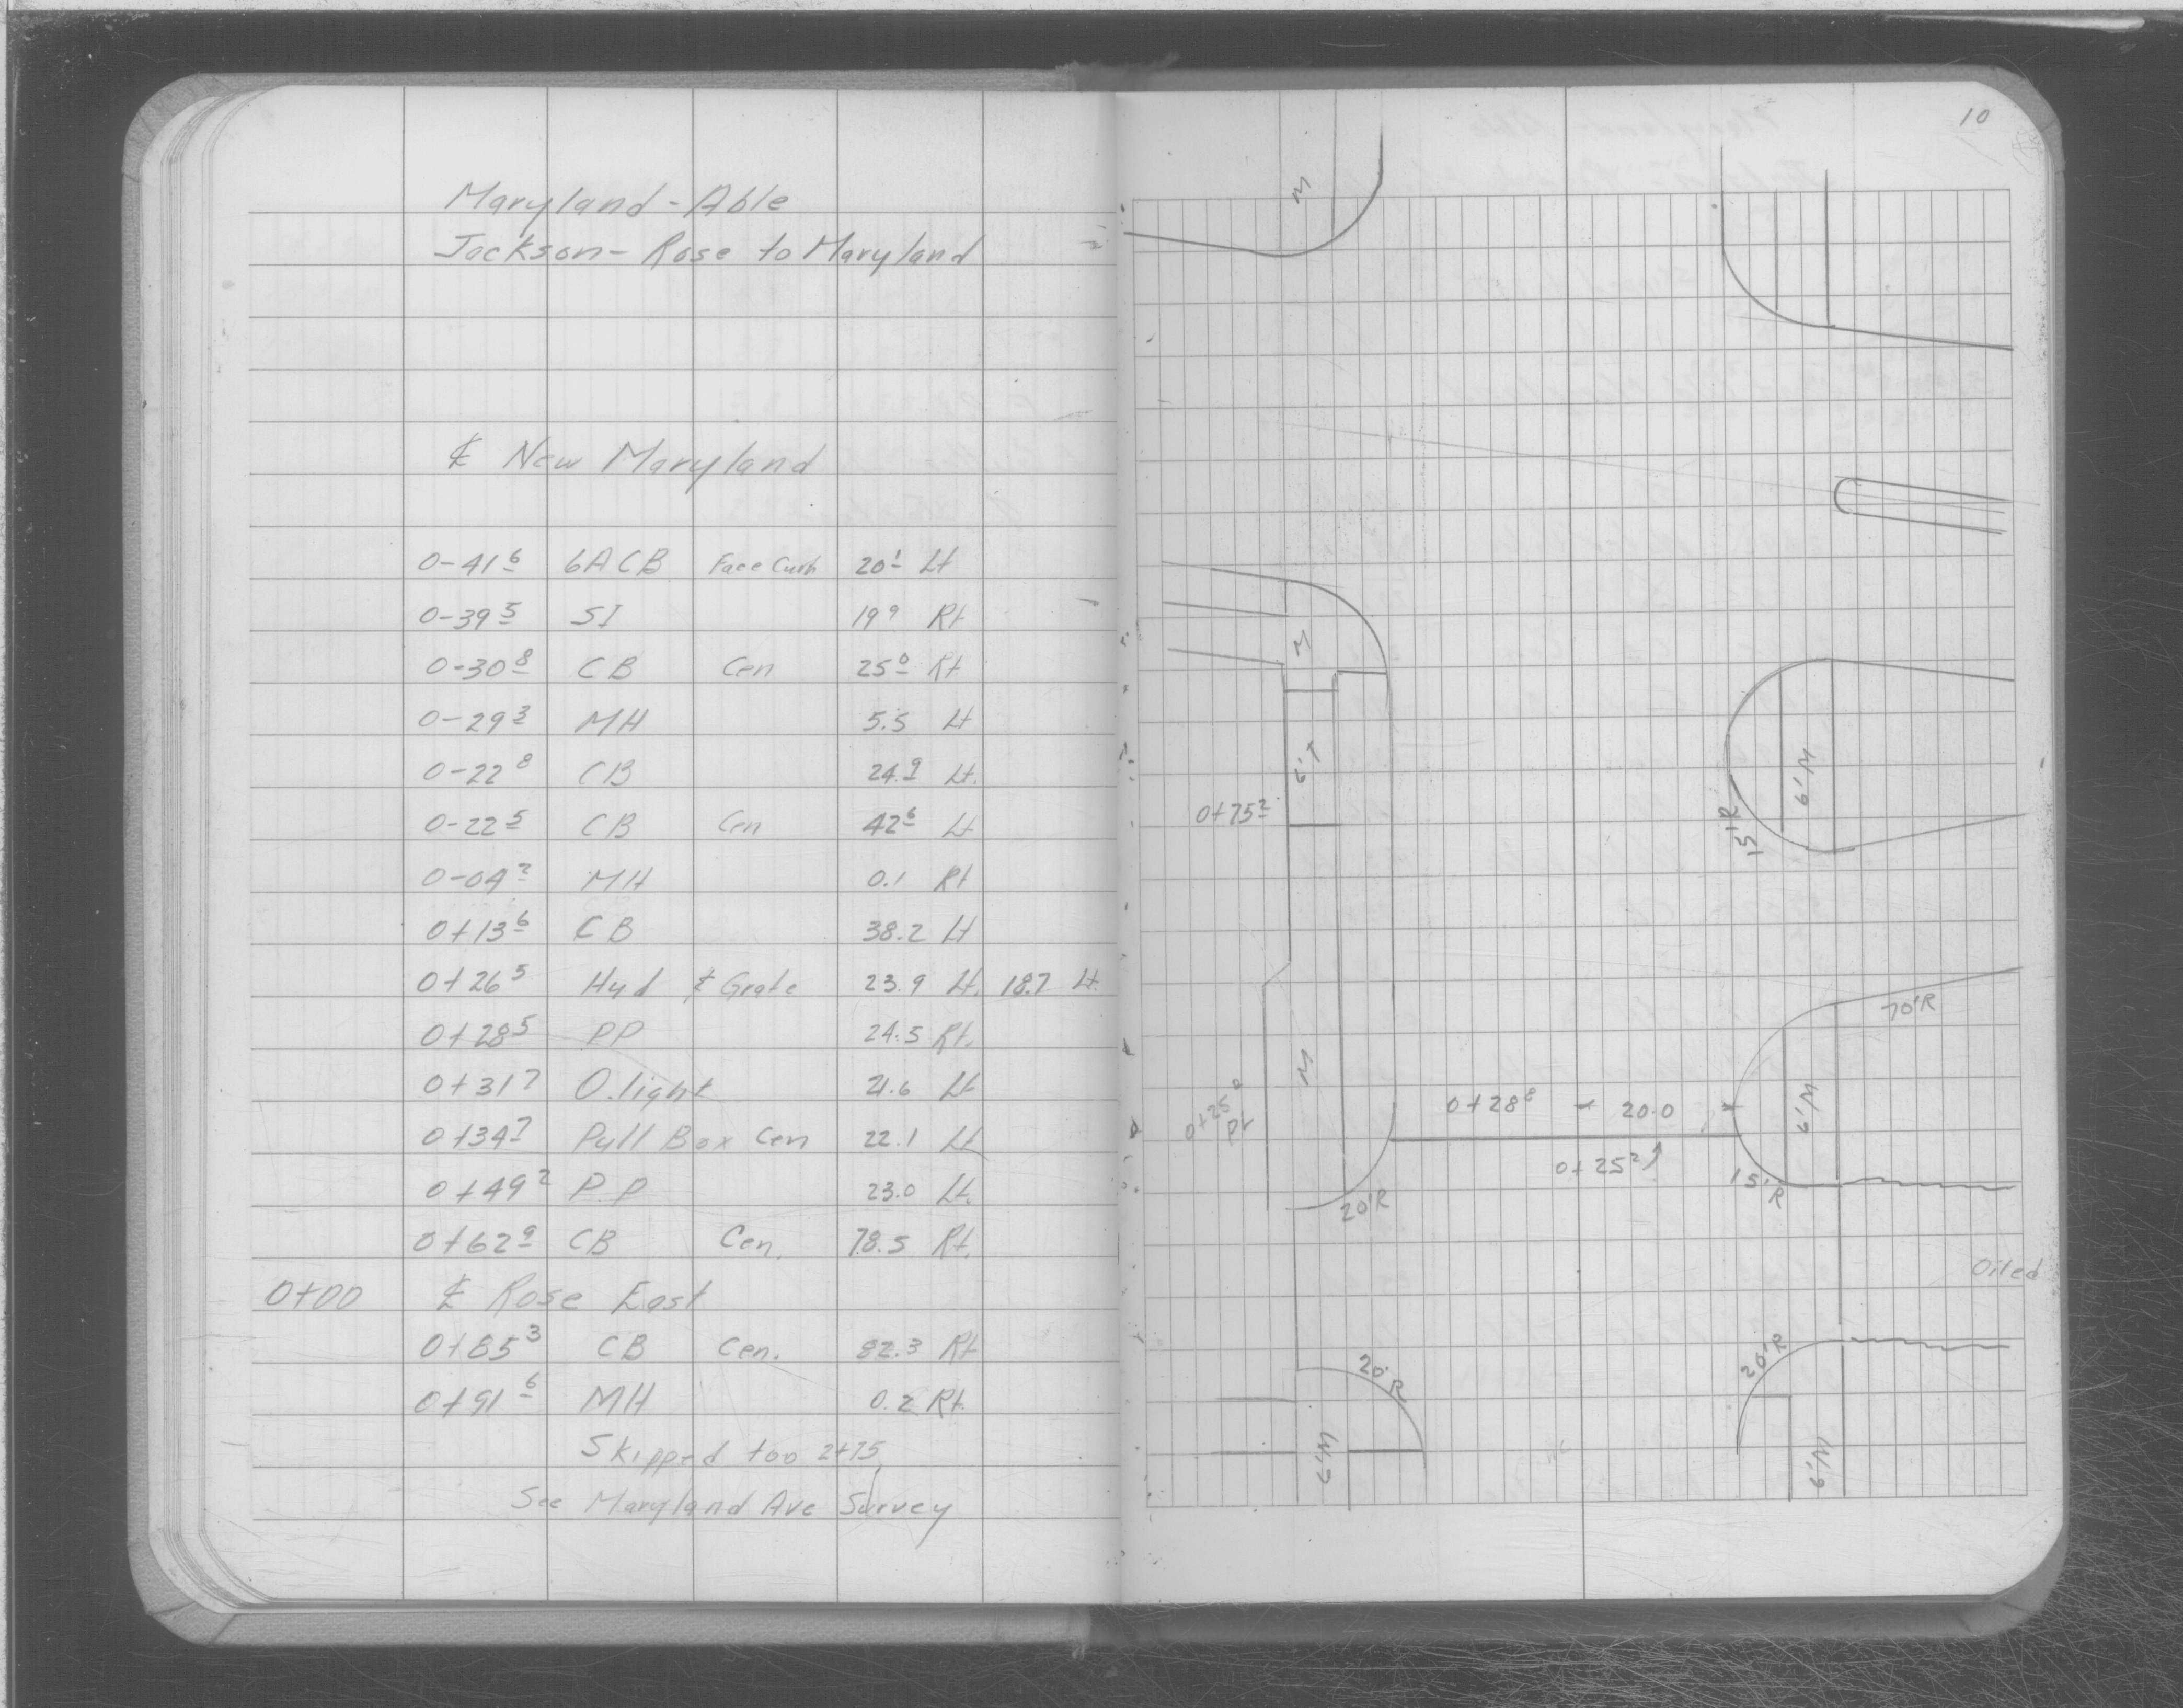 Maryland - Able
Jackson - Rose to Maryland
℄ New Maryland
0-41 6 6A CB Face Curb 20 1 Lt
0-39 5 SI 19 9 Rt
0-30 8 CB Cen 25 0 Rt
0-29 3 MH 5.5 Lt
0-22 8 CB 24.9 Lt.
0-22 5 CB Cen 42 6 Lt
0-04 2 MH 0.1 Rt
0+13 6 CB 38.2 Lt
0+26 5 Hyd & Grate 23.9 Lt. 18.7 Lt.
0+28 5 PP 24.5 Rt.
0+31 7 O. light 21.6 Lt
0+34 7 Pull Box Cen 22.1 Lt
0+49 2 P.P 23.0 Lt.
0+62 9 CB Cen. 78.5 Rt.
0+00 ℄ Rose East
0+85 3 CB Cen. 82.3 Rt
0+91 6 MH 0.2 Rt.
Skipped too 2+75
See Maryland Ave Survey
10
M
M
6'T
0+75 2
6'M
15'R
70'R
M
0+25 0
Pt
0+28 8 - 20.0
0+25 2
6'M
15'R
20'R
Oiled
20'R
20'R
6'M
6'M